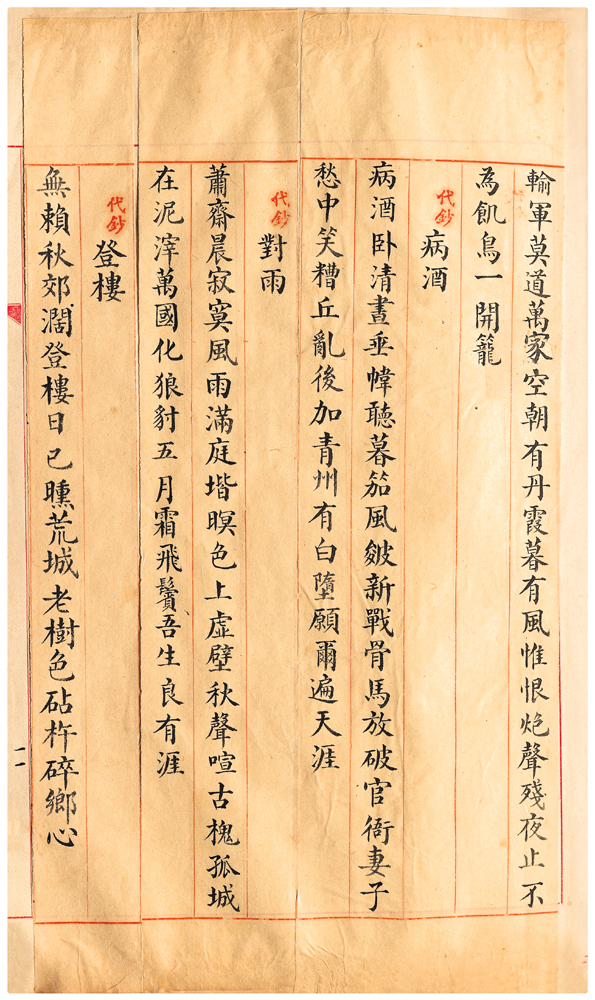 輸軍莫道萬家空朝有丹霞暮有風惟恨炮聲殘夜止不
為飢鳥一開籠
代鈔
病酒
病酒卧清晝垂幃聽暮笳風皴新戰骨馬放破官衙妻子
愁中笑糟丘亂後加青州有白墮願爾遍天涯
代鈔
對雨
蕭齋晨寂寞風雨滿庭堦暝色上虛壁秋聲喧古槐孤城
在泥滓萬國化狼豺五月霜飛鬢吾生良有涯
代鈔
登樓
無賴秋郊濶登樓日已曛荒城老樹色砧杵碎鄉心
一一